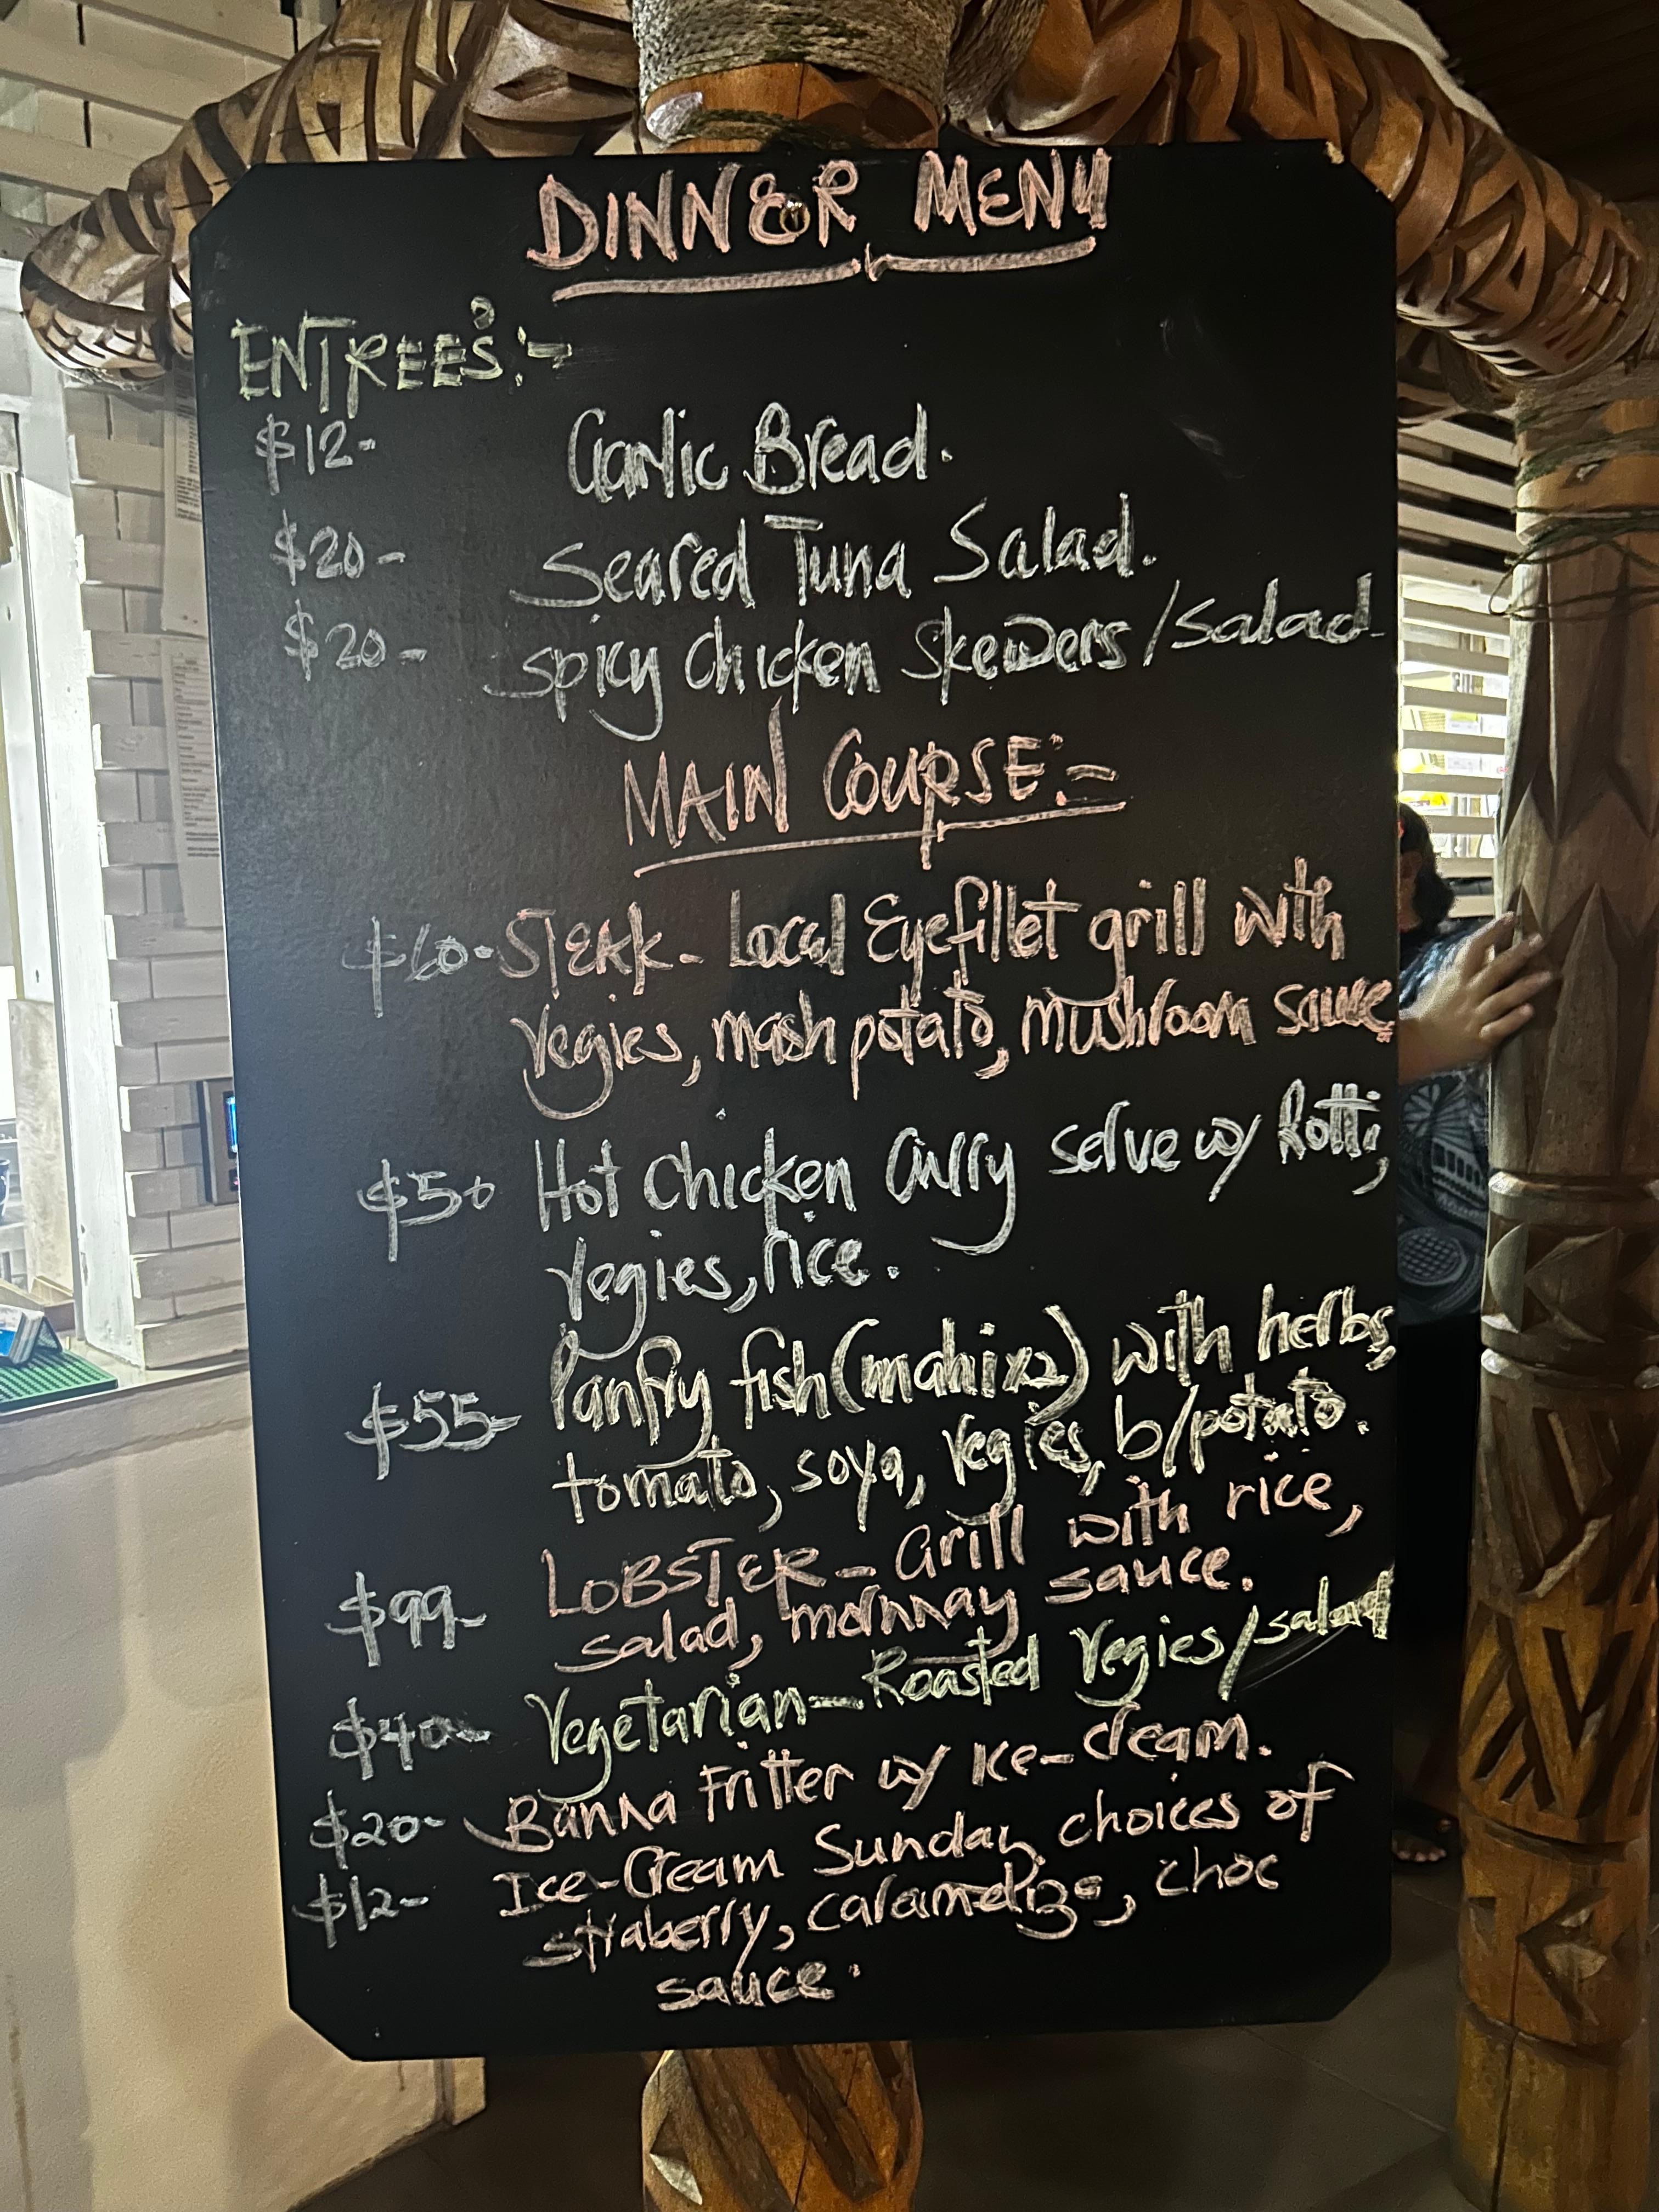 DINNER MENU
ENTREE'S:-
$12- Garlic Bread.
$20- Seared Tuna Salad.
$20- Spicy Chicken Skewers/Salad-
MAIN COURSE:-
$60- STEAK- Local Eyefillet grill with
vegies, mash potato, mushroom sauce
$50 Hot Chicken Curry serve w/ Rotti,
vegies, rice.
$55- Panfry fish(mahix2) with herbs,
tomato, soya, vegies, b/potato.
$99- LOBSTER- Grill with rice,
salad, mornnay sauce.
$40- Vegetarian- Roasted vegies/salad
$20- Banna Fritter w/ Ice-cream.
$12- Ice-Cream Sunday, choices of
straberry, caramelize, choc
sauce.